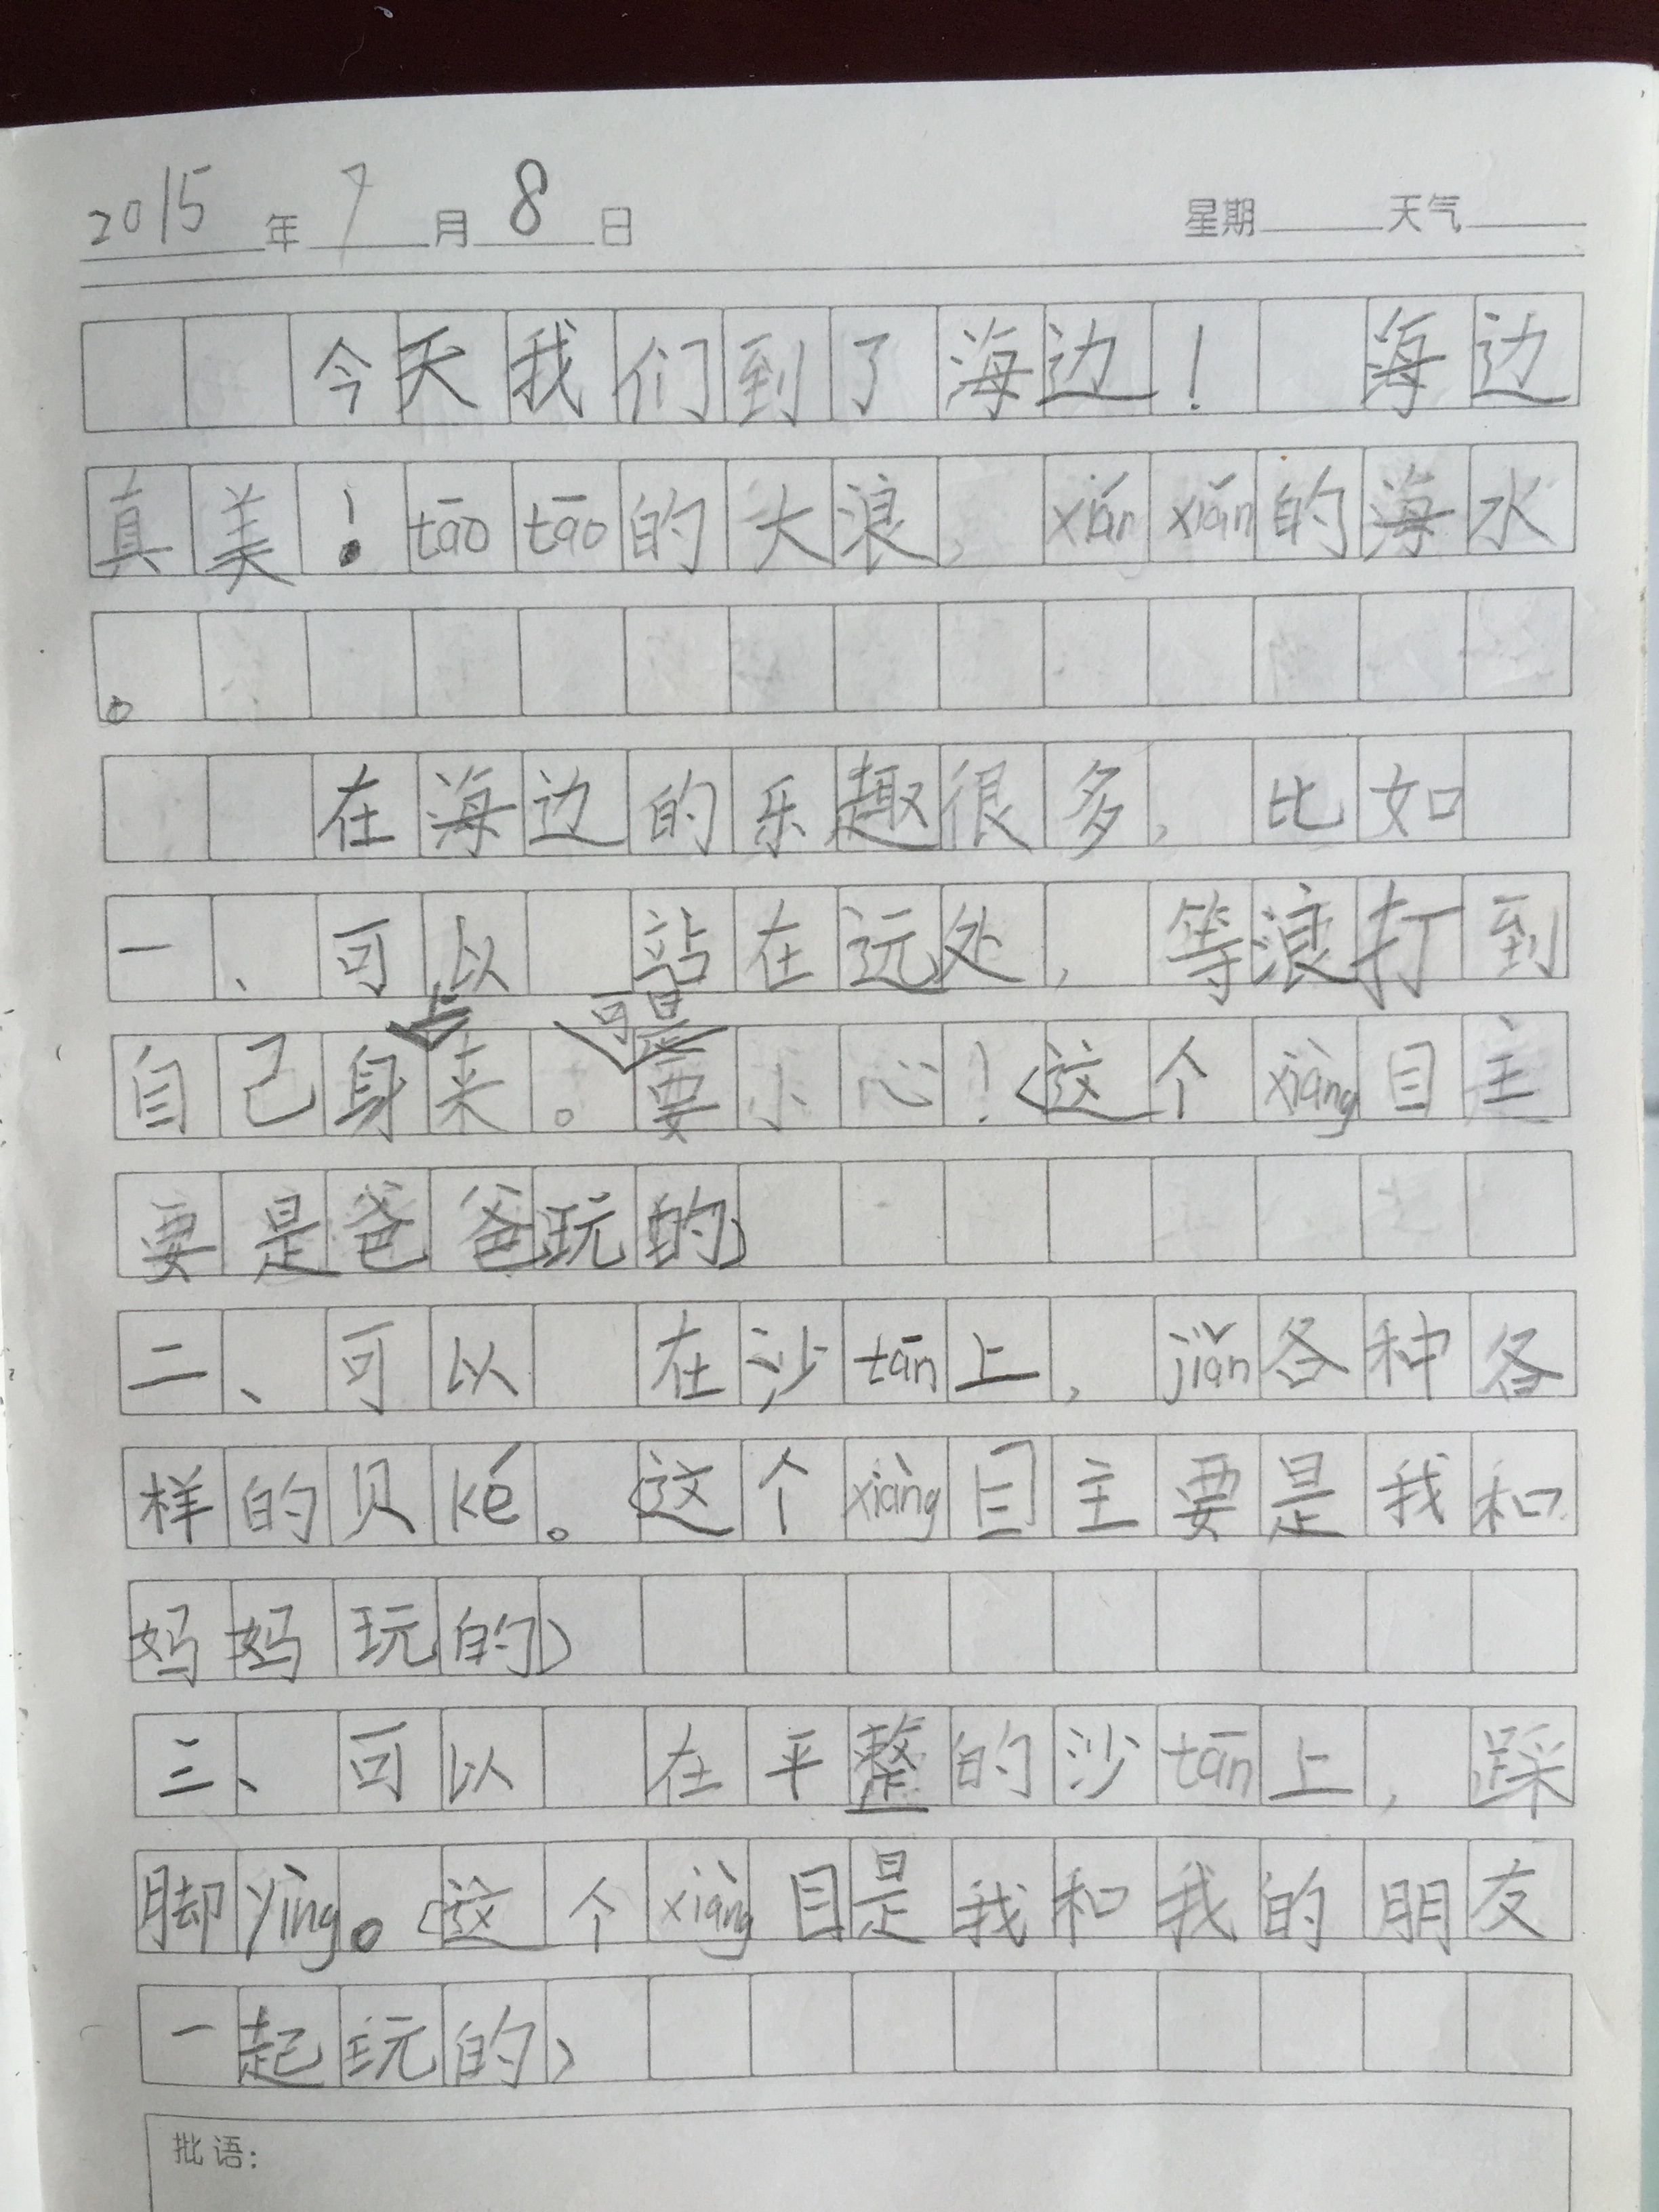 2015年7月8日 星期 天气
今天我们到了海边! 海边
真美!tāo tāo的大浪,xián xián的海水
。
在海边的乐趣很多,比如
一、可以 站在远处,等浪打到
上 可是
自己身来。要小心!(这个xiàng目主
要是爸爸玩的)
二、可以 在沙tān上,jiǎn各种各
样的贝ké。(这个xiàng目主要是我和
妈妈玩的)
三、可以 在平整的沙tān上,踩
脚yìng。(这个xiàng目是我和我的朋友
一起玩的)
批语: